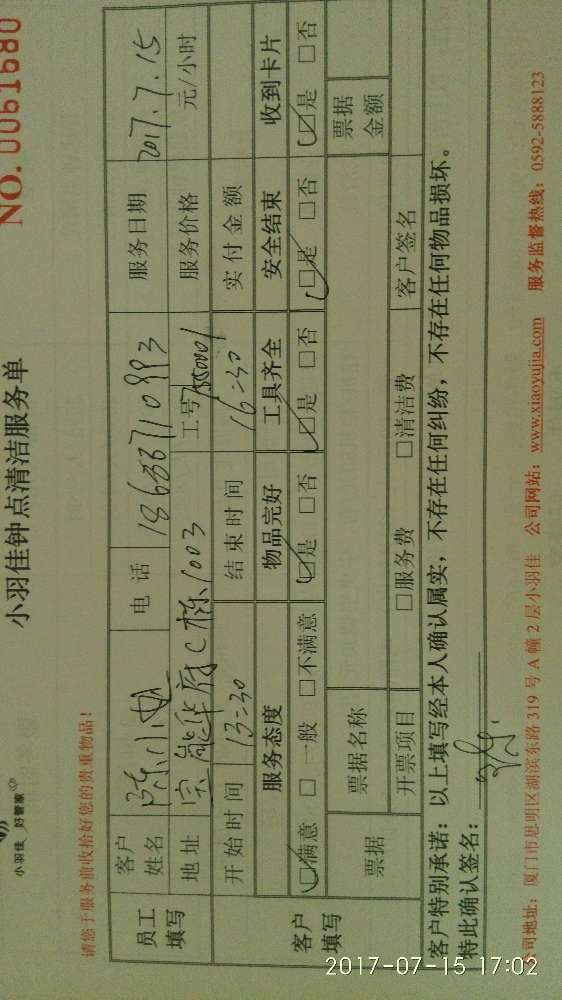 小羽佳 好管家
小羽佳钟点清洁服务单
NO. 0061680
请您于服务前收拾好您的贵重物品!
员工填写 客户姓名 电话 服务日期 2017.7.15
地址 工号 服务价格 元/小时
开始时间 13:30 结束时间 16:30 实付金额
客户填写 服务态度 物品完好 工具齐全 安全结束 收到卡片
□满意 □一般 □不满意 □是 □否 □是 □否 □是 □否 □是 □否
票据 票据名称 票据金额
开票项目 □服务费 □清洁费 客户签名
客户特别承诺:以上填写经本人确认属实,不存在任何纠纷,不存在任何物品损坏。
特此确认签名:
公司地址:厦门市思明区湖滨东路319号A幢2层小羽佳 公司网站:www.xiaoyujia.com 服务监督热线:0592-5888123
2017-07-15 17:02